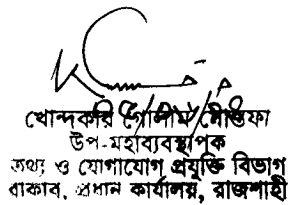 খোন্দকার গোলাম মোস্তফা
উপ-মহাব্যবস্থাপক
তথ্য ও যোগাযোগ প্রযুক্তি বিভাগ
রাকাব, প্রধান কার্যালয়, রাজশাহী